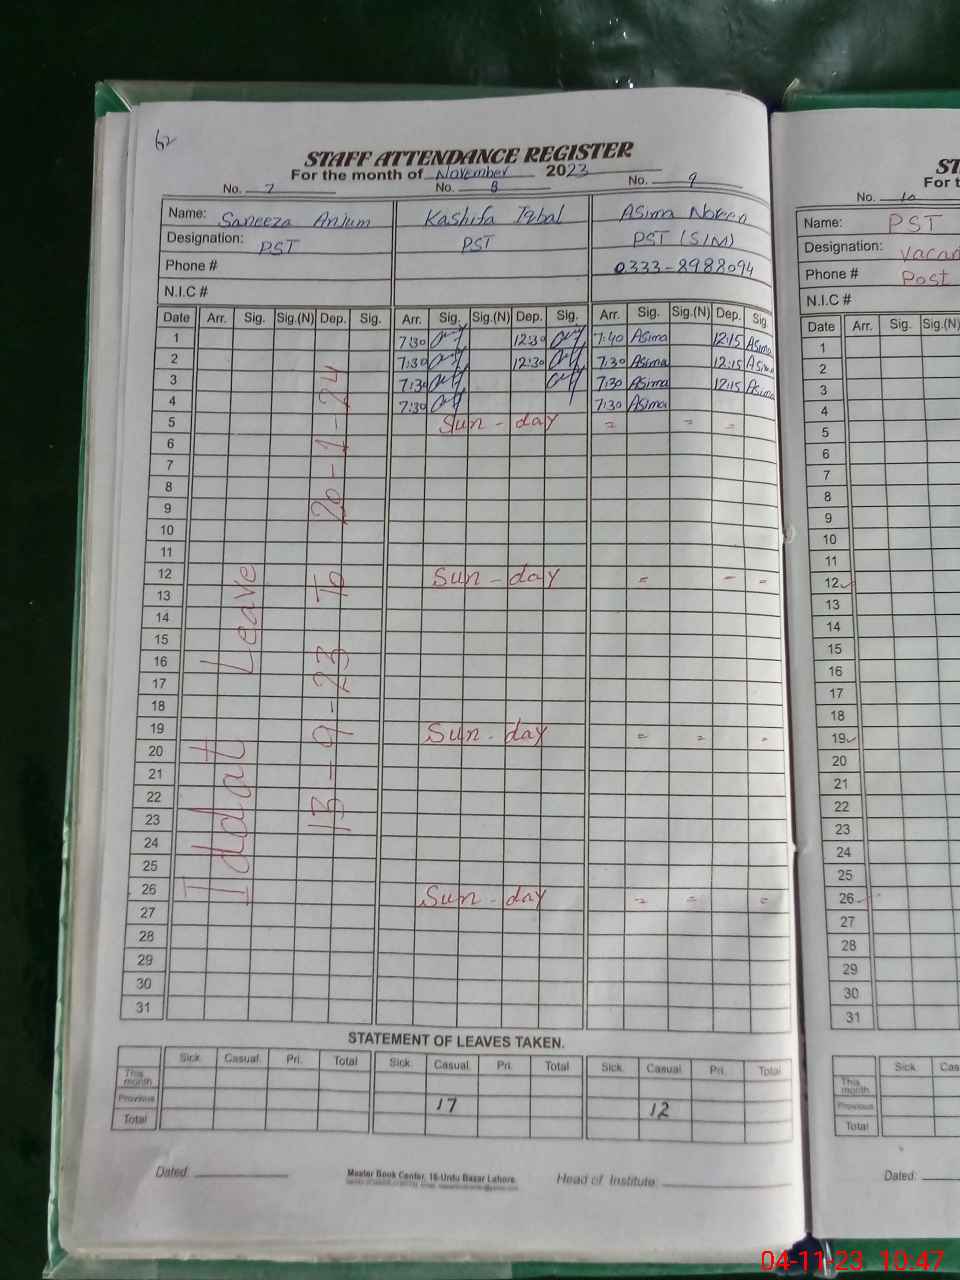 62
STAFF ATTENDANCE REGISTER
For the month of November 2023
No. 7 No. 8 No. 9
Name: Saneeza Anjum Kashifa Iqbal Asima Noreen
Designation: PST PST PST (SIM)
Phone # 0333-8988094
N.I.C #
Date Arr. Sig. Sig.(N) Dep. Sig. Arr. Sig. Sig.(N) Dep. Sig. Arr. Sig. Sig.(N) Dep. Sig.
1 7:30 12:30 7:40 Asima 12:15 Asima
2 7:30 12:30 7:30 Asima 12:15 Asima
3 7:30 7:30 Asima 12:15 Asima
4 7:30 7:30 Asima
5 Sun - day = = =
6
7
8
9
10
11
12 Sun - day = = =
13
14
15
16
17
18
19 Sun - day = = =
20
21
22
23
24
25
26 Sun - day = = =
27
28
29
30
31
Iddat Leave
13-9-23 To 20-1-24
STATEMENT OF LEAVES TAKEN.
Sick. Casual. Pri. Total Sick. Casual. Pri. Total Sick. Casual. Pri. Total
This month
Previous 17 12
Total
Dated. Master Book Center, 16-Urdu Bazar Lahore. Head of Institute
ST
For t
No. 10
Name: PST
Designation: Vacan
Phone # Post
N.I.C #
Date Arr. Sig. Sig.(N)
1
2
3
4
5
6
7
8
9
10
11
12
13
14
15
16
17
18
19
20
21
22
23
24
25
26
27
28
29
30
31
Sick. Cas
This month
Previous
Total
Dated:
04-11-23 10:47